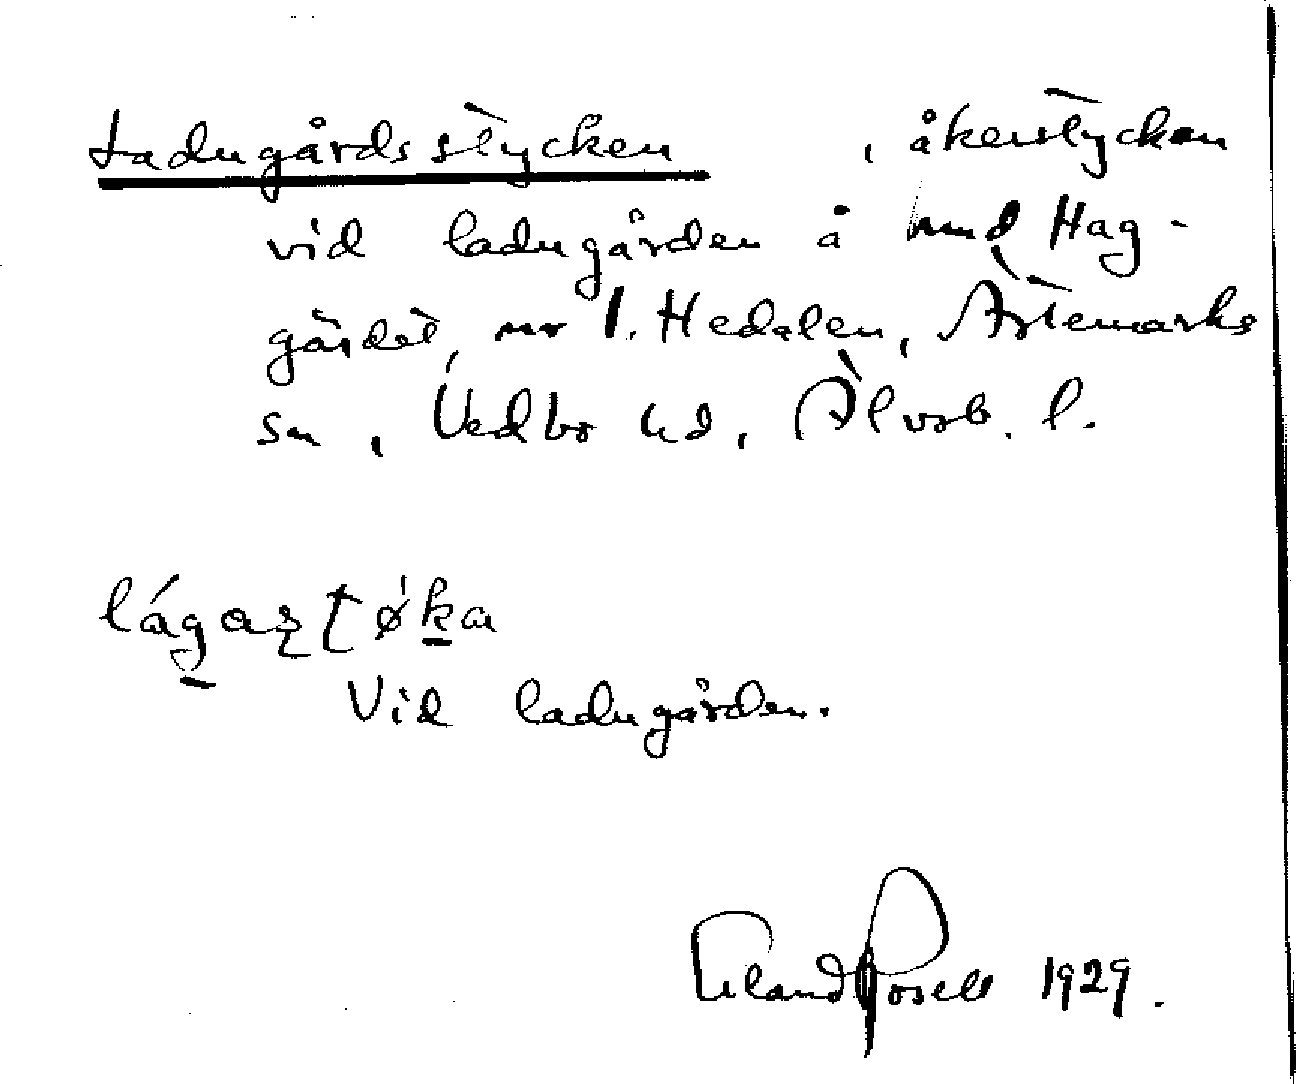 Ladugårdsstycken , åkerstycken
vid ladugården å und Hag-
gärdet, nr 1. Hedalen, Ärtemarks
sn, Vedbo hd, Älvsb. l.
lágaʂʈøka
Vid ladugården.
Erland Rosell 1929.